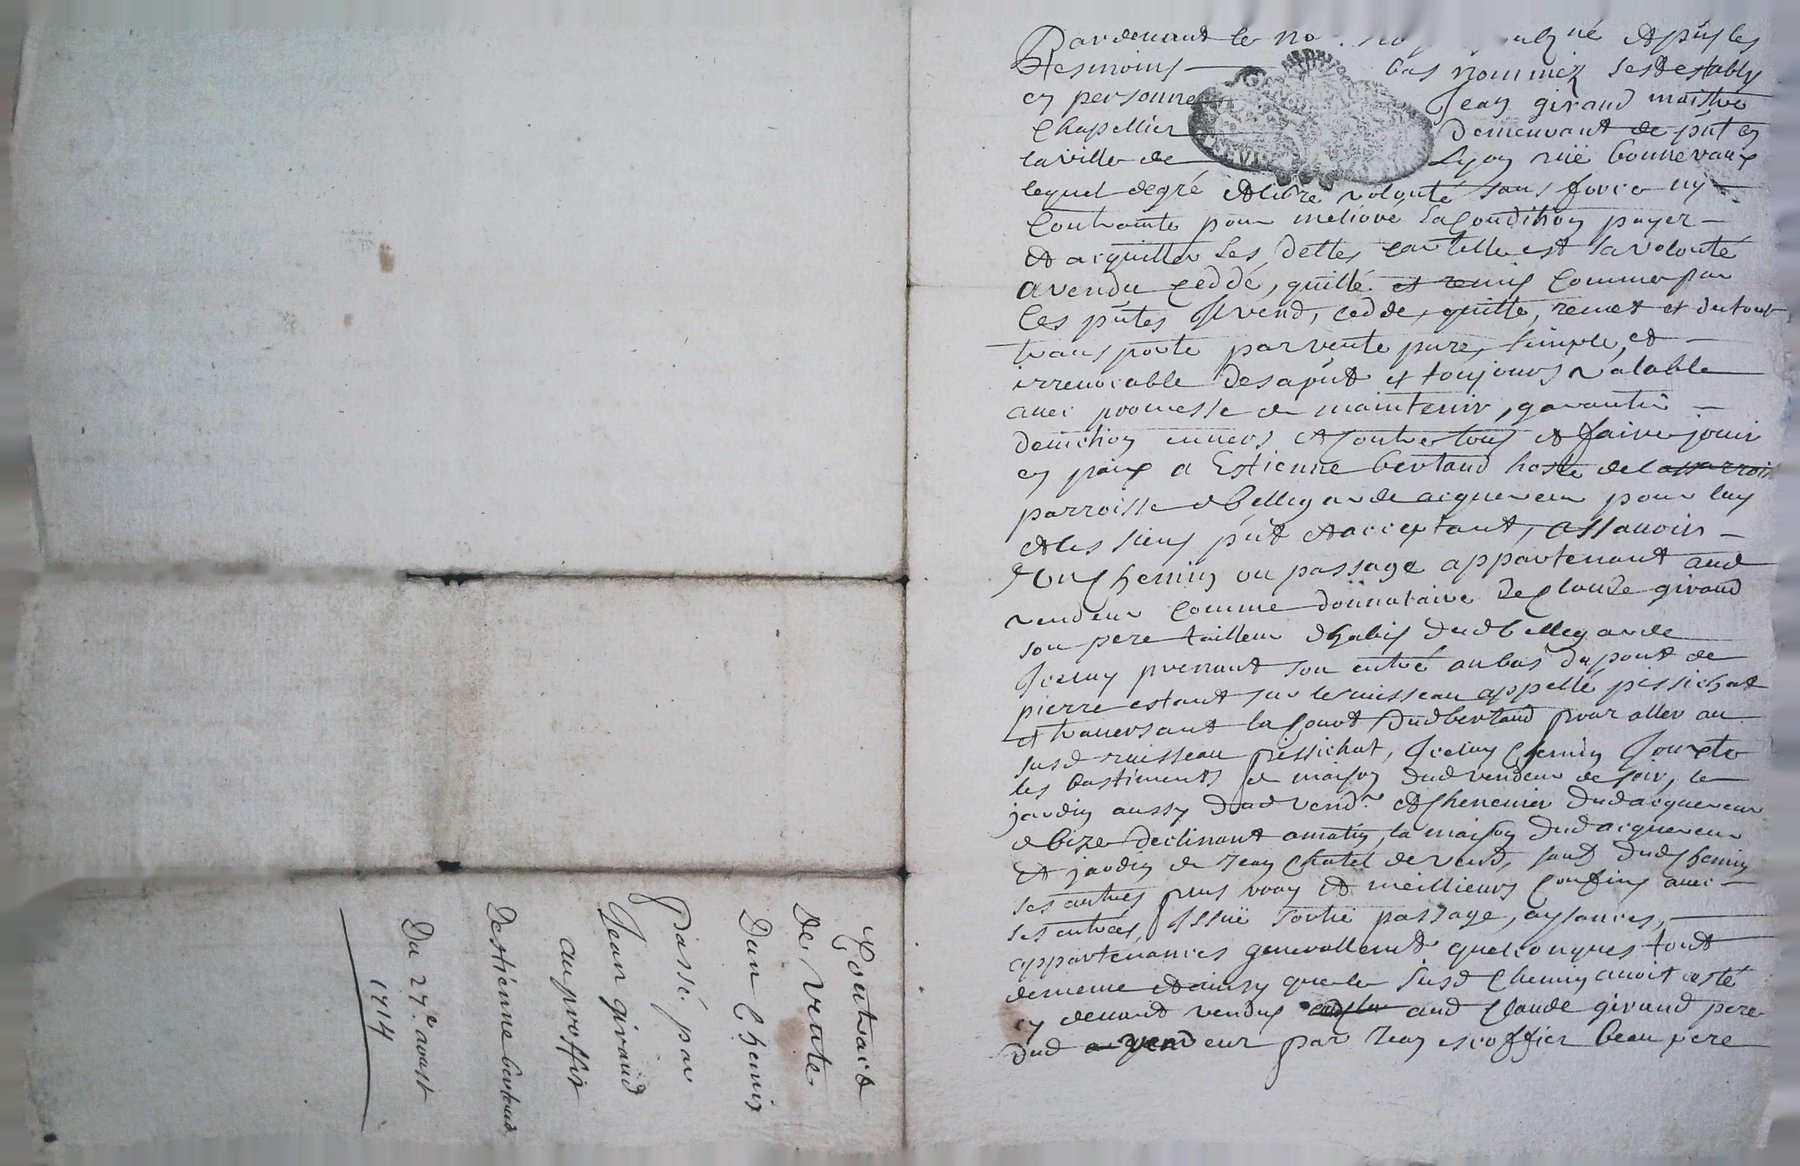 Pardevant le no
Tesmoins bas nommez s'est estably
en personne Jean giraud maistre
Chapellier demeurant de pnt en
la ville de Lyon ruë bonnevaux
lequel de gré et libre volonté sans force ny
Contrainte pour meliore sa Condition payer
et acquitter ses dettes car telle est sa volonté
a vendu ceddé, quitté et remis Comme par
Ces pntes Il vend, cedde, quitte, remet et du tout
transporte par vente pure, simple, et
irrevocable des a pnt et toujours valable
avec promesse de maintenir, garantir
deviction envers et Contre tous et faire jouir
en paix a Estienne bertaud hoste de la
parroisse de bellegarde acquereur pour luy
et les siens pnt et acceptant, assavoir
Un Chemin ou passage appartenant aud
vendeur Comme donnataire de Claude giraud
son pere tailleur d'habis dud bellegarde
Iceluy prenant son entré au bas du pont de
pierre estant sur le ruisseau appellé pissichat
et traversant la Court dud bertaud pour aller au
susd ruisseau pissichat, Iceluy Chemin Jouxte
les bastiments et maison dud vendeur de soir, le
jardin aussy dud vendr. et Chenevier dud acquereur
de bize declinant a matin, la maison dud acquereur
et jardin de Jean Chatel de vend, sauf dud Chemin
ses autres plus vray et meillieurs Confins avec
ses entrées, Issuë sortie passage, aysances,
appartenances generallement quelconques tout
de meme et ainsy que le susd Chemin avoit esté
cy devant vendus aud Claude giraud pere
dud vendeur par Jean escoffier beau pere
Contract
De vente
Dun Chemin
Passé par
Jean giraud
au proffit
Destienne bertaud
Du 27e. aoust
1714